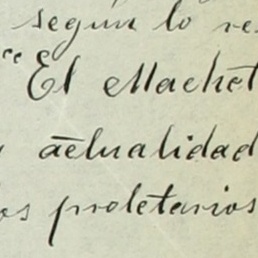 según lo re
"El Machet
actualidad
os proletarios